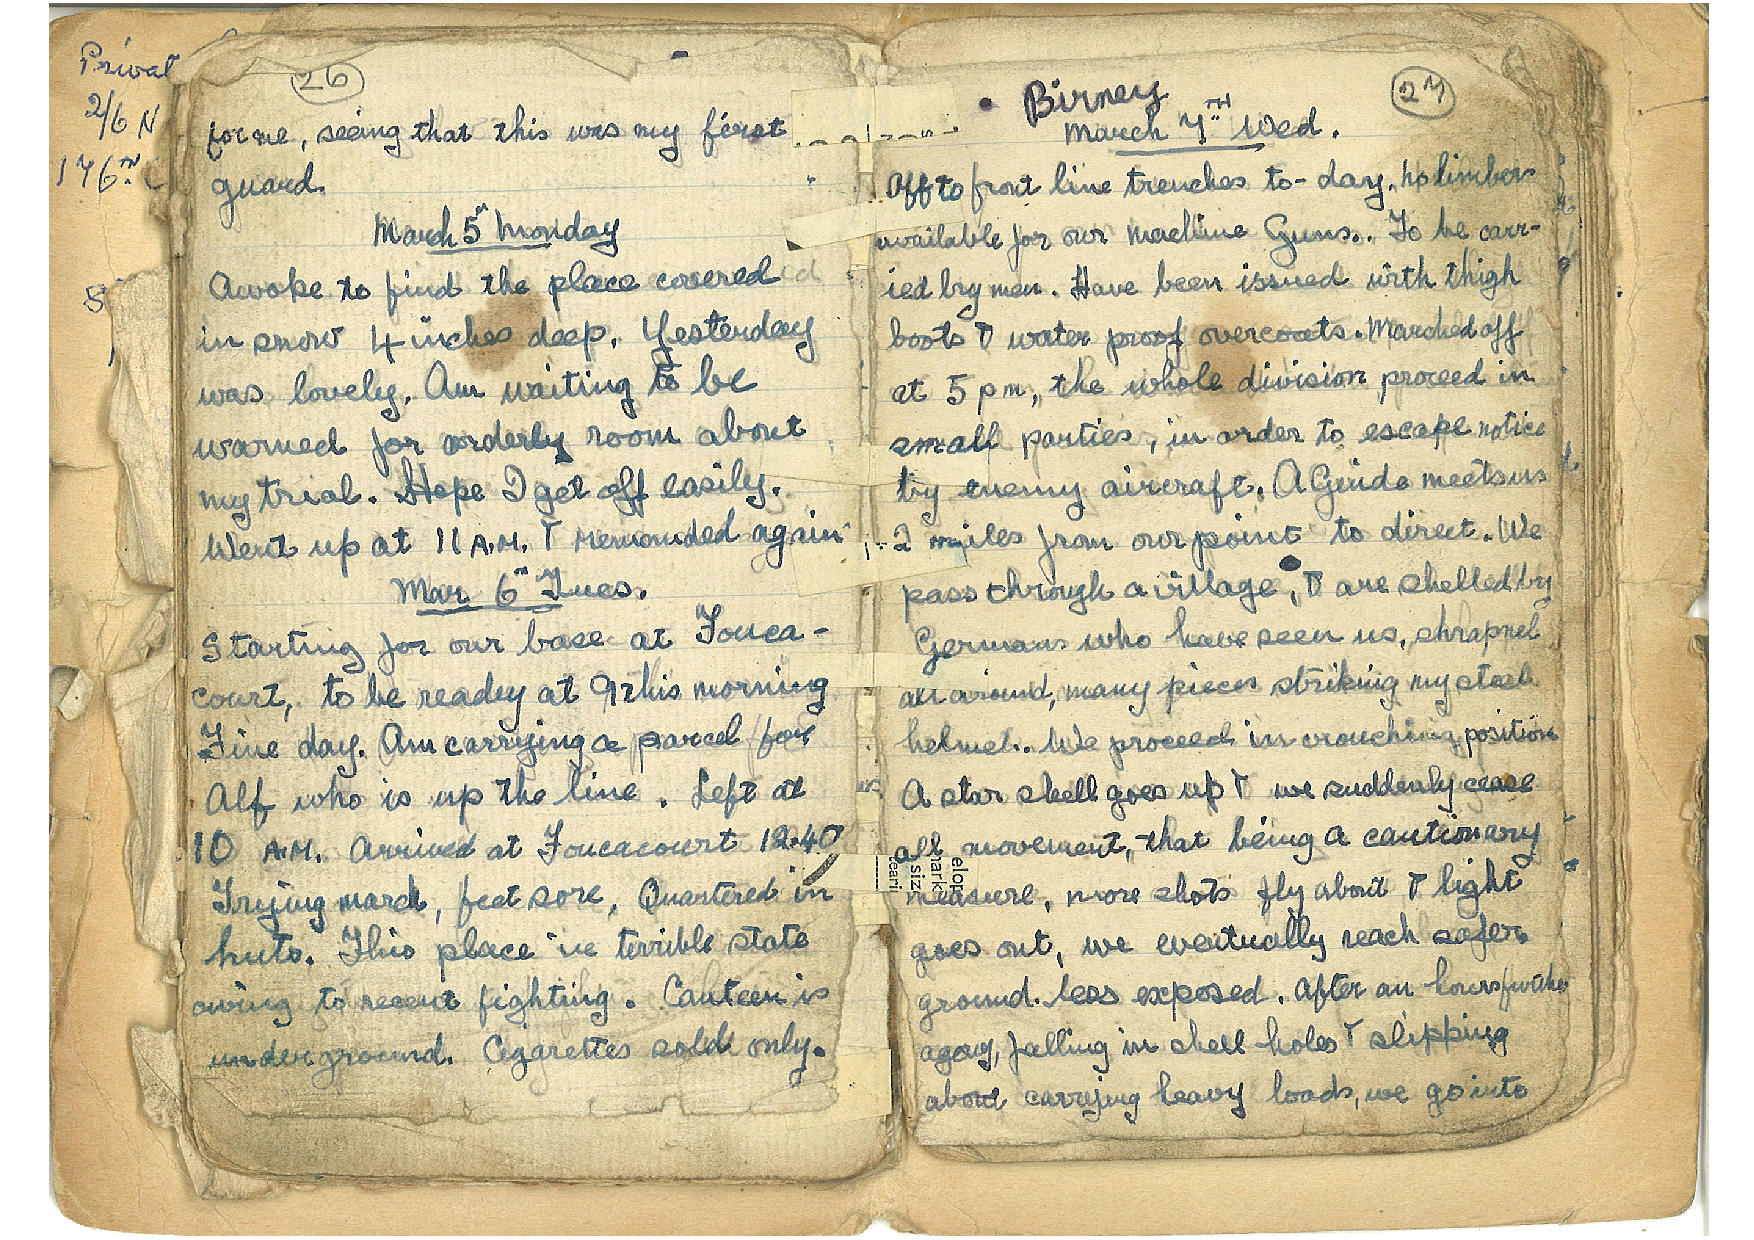 Privat
2/6 N
176TH
26
for me, seeing that this was my first
guard.
March 5th Monday
Awoke to find the place covered
in snow 4 inches deep. Yesterday
was lovely. Am waiting to be
warned for orderly room about
my trial. Hope I get off easily.
Went up at 11 A.M. & remounded again
Mar 6TH Tues.
Starting for our base at Fouca-
court, to be ready at 9 this morning
Fine day. Am carrying a parcel for
Alf who is up the line. Left at
10 A.M. Arrived at Foucacourt 12.40
Trying march, feet sore. Quartered in
huts. This place in terrible state
owing to recent fighting. Canteen is
underground. Cigarettes sold only.
27
Birney
March 7TH Wed.
Off to front line trenches to-day, no limbers
available for our machine Guns.. To be carr-
ied by men. Have been issued with thigh
boots & water proof overcoats. Marched off
at 5 pm, the whole division proceed in
small parties, in order to escape notice
by enemy aircraft. A Guide meets us
2 miles from our point to direct. We
pass through a village, & are shelled by
Germans who have seen us, shrapnel
all around, many pieces striking my steel
helmet.. We proceed in crouching position
A star shell goes up & we suddenly cease
all movement, that being a cautionary
measure, more shots fly about & light
goes out, we eventually reach safer
ground. less exposed. After an hours further
agony, falling in shell holes & slipping
about carrying heavy loads, we go into